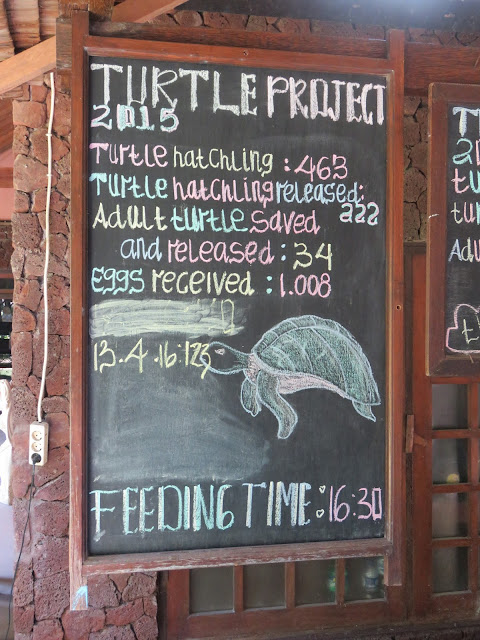 TURTLE PROJECT
2015
Turtle hatchling : 463
Turtle hatchling released:
222
Adult turtle saved
and released : 34
Eggs received : 1.008
13.4.16:123
FEEDING TIME: 16:30